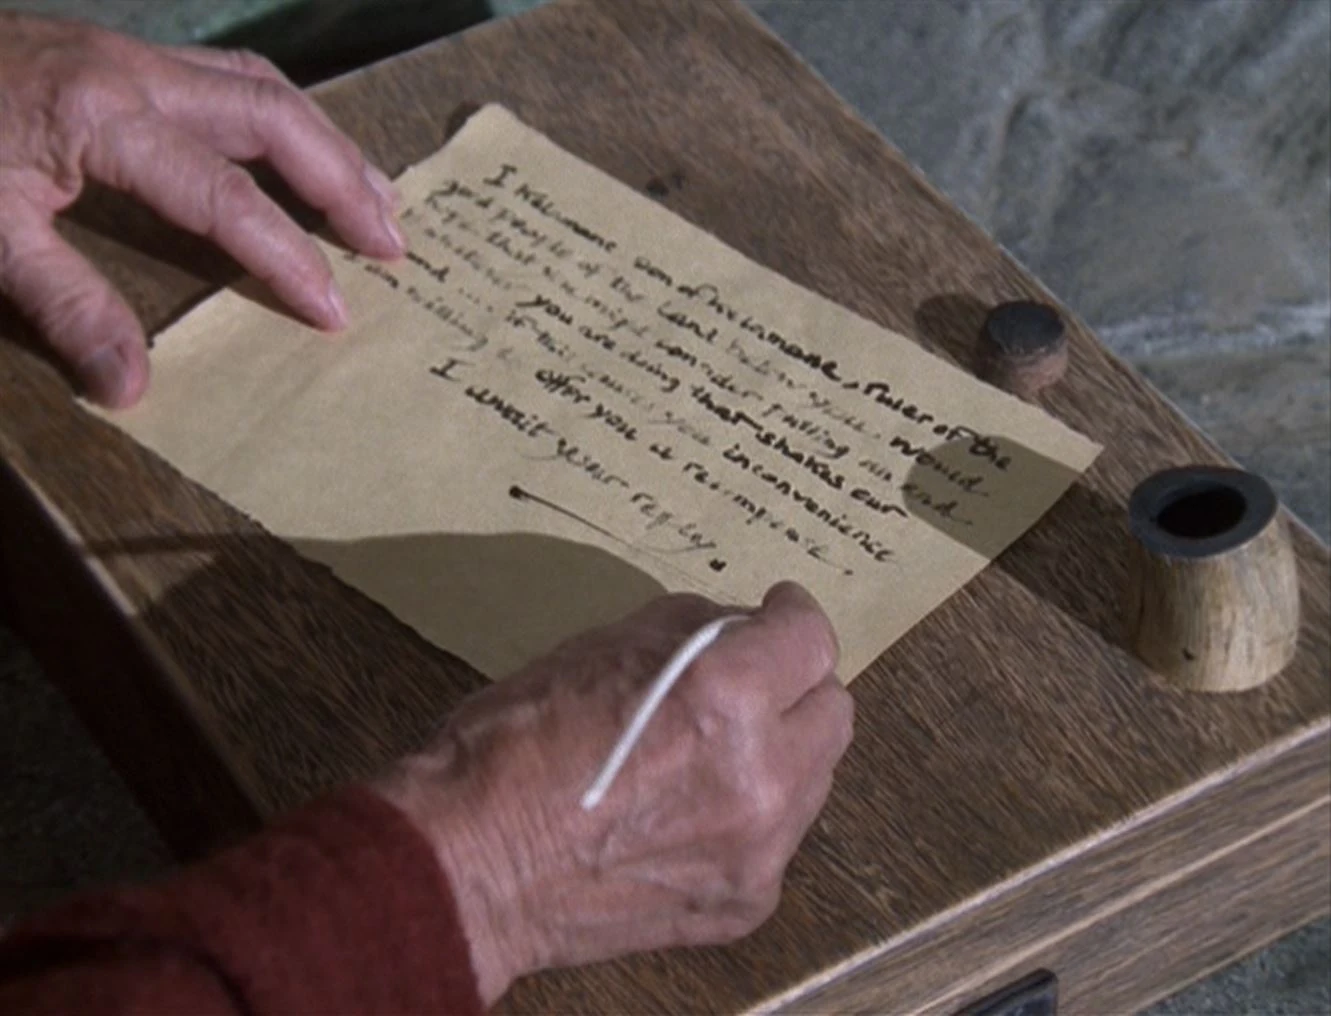 I son of ruler of the
good people of the land below you. would
that might consider putting an end.
whatever you are doing that shakes our
land ... If this causes you inconvenience
I am willing to offer you a recompense.
I await your reply.